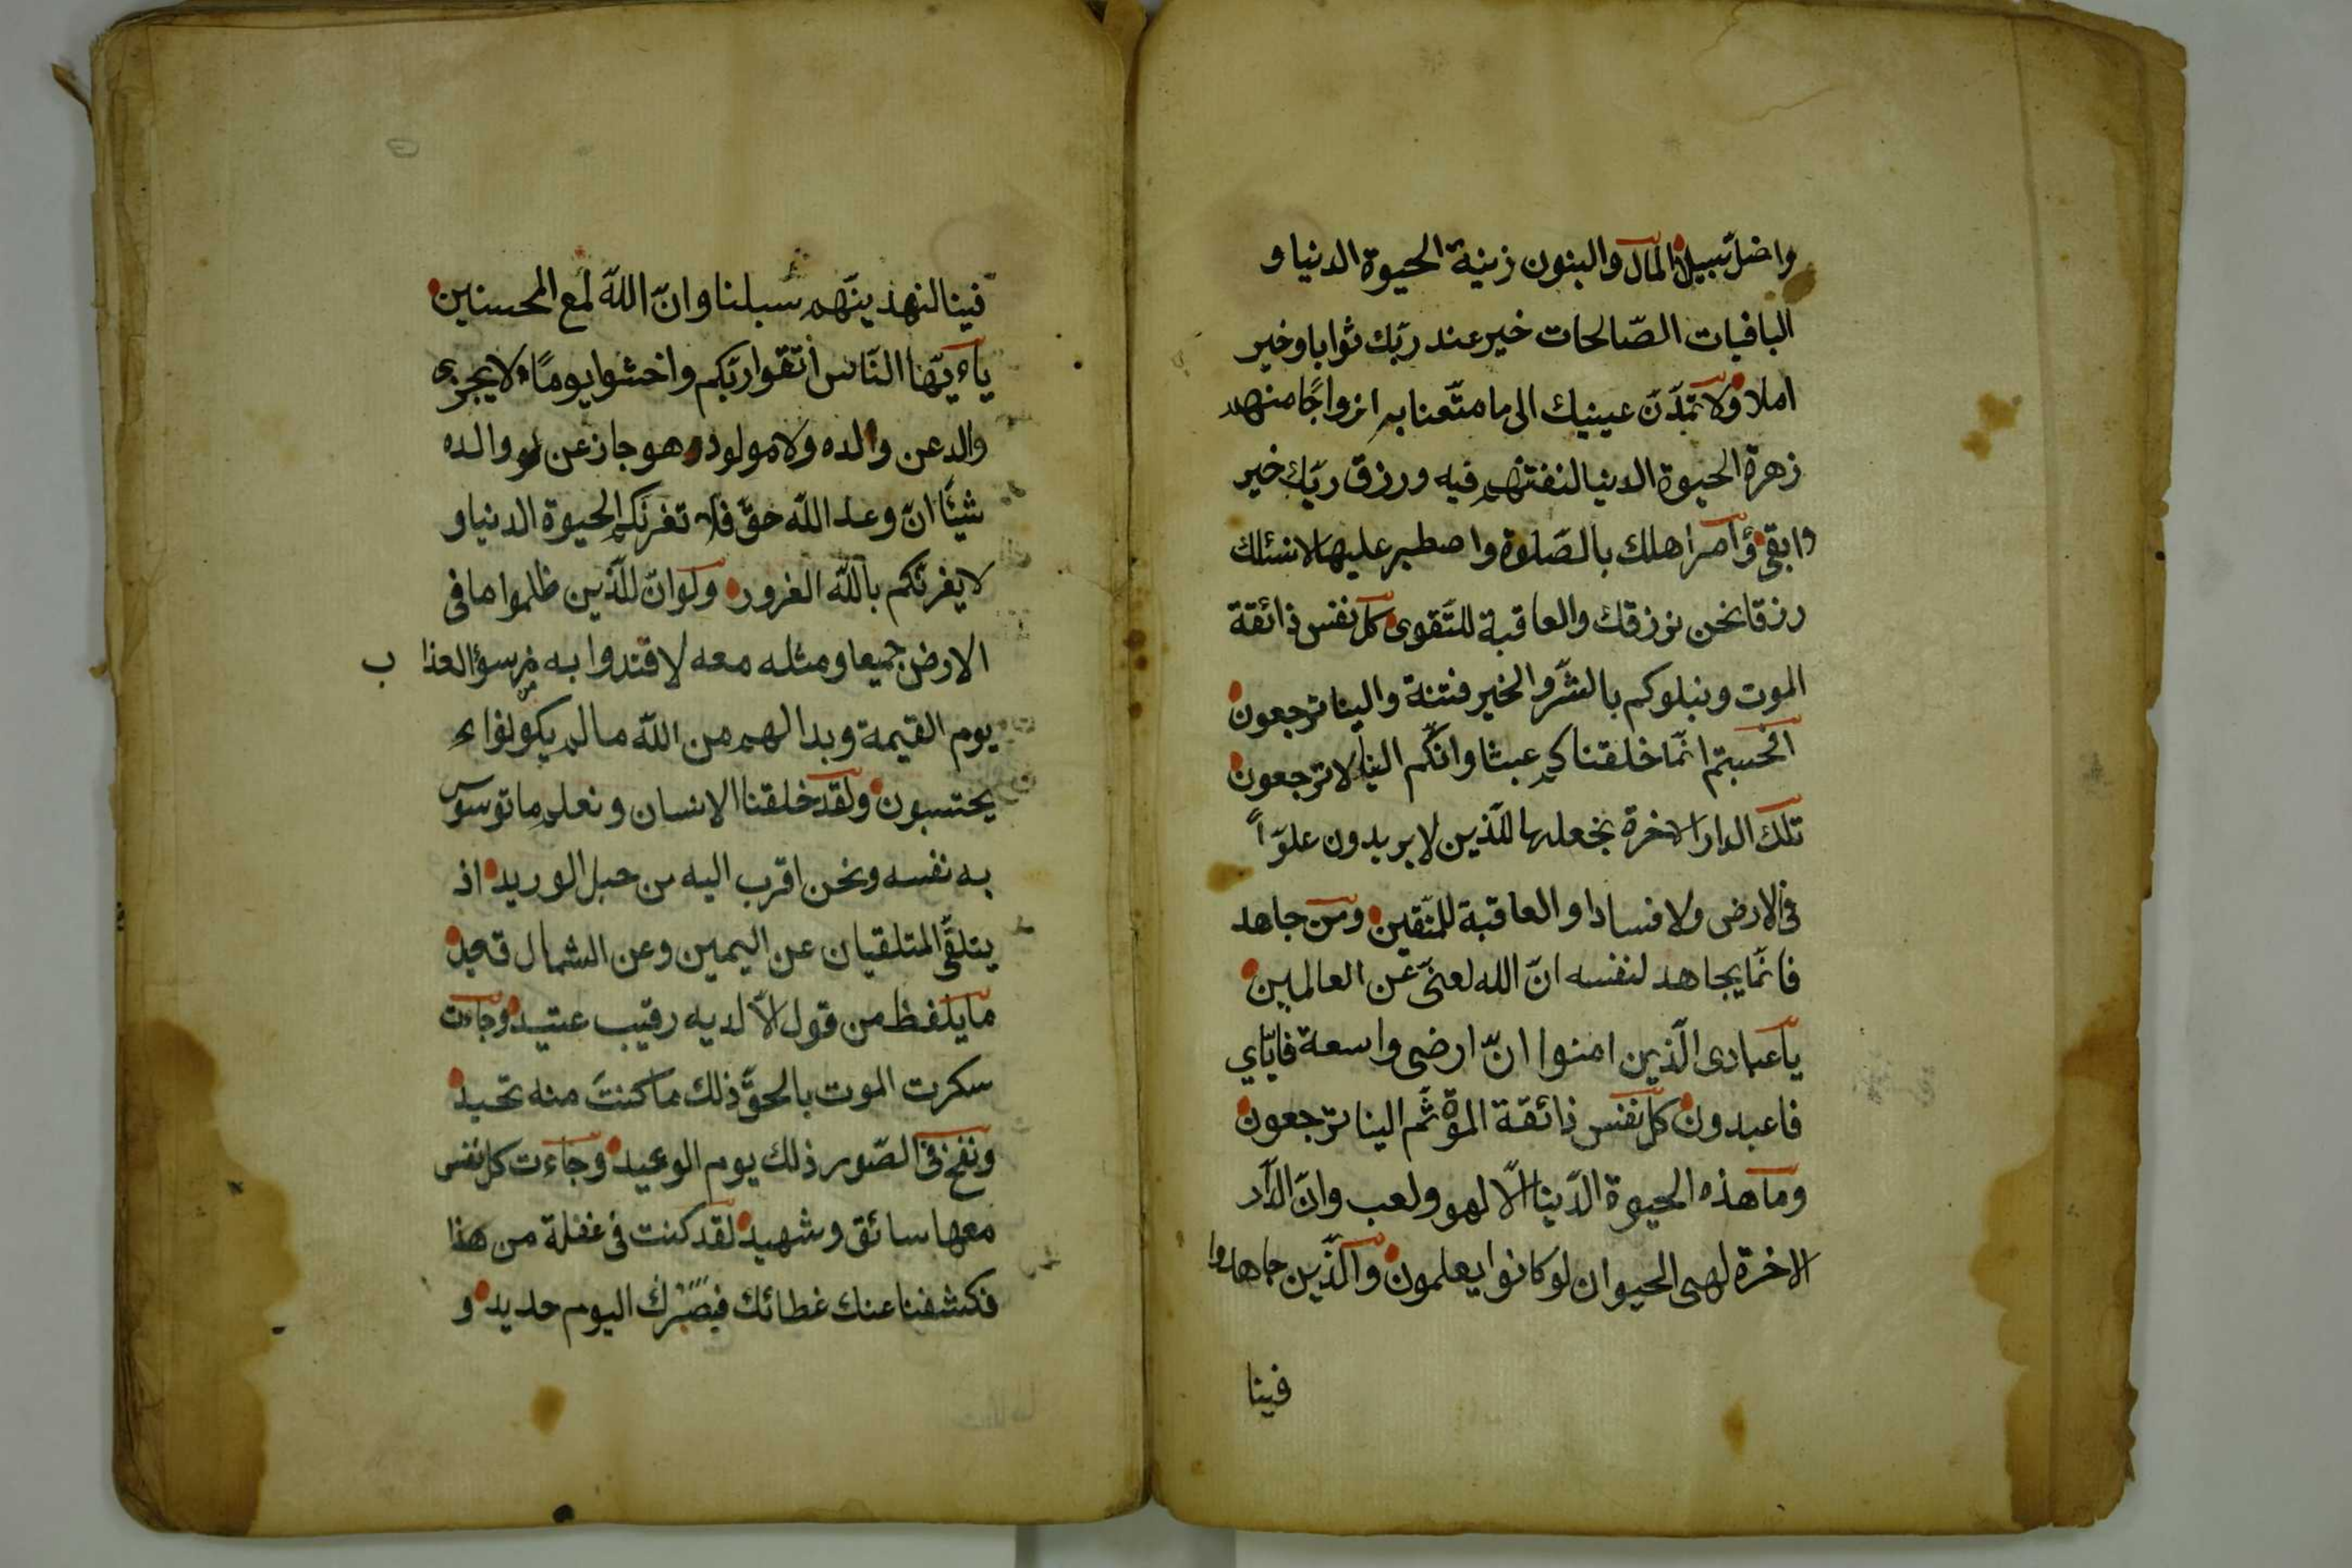 واضل سبيلا المال والبنون زينة الحيوة الدنيا و
الباقيات الصّالحات خير عند ربّك ثوابا وخير
املا ولا تمدّنّ عينيك الى ما متّعنا به ازواجًا منهم
زهرة الحيوة الدنيا لنفتنهم فيه ورزق ربّك خير
وابقى وأمر اهلك بالصّلوة واصطبر عليها لا نسئلك
رزقا نحن نرزقك والعاقبة للتّقوى كل نفس ذائقة
الموت ونبلوكم بالشّر والخير فتنة والينا ترجعون
افحسبتم انّما خلقناكم عبثا وانّكم الينا لا ترجعون
تلك الدار الاخرة نجعلها للّذين لا يريدون علوّاً
فى الارض ولا فسادا والعاقبة للمتّقين ومن جاهد
فانّما يجاهد لنفسه انّ الله لغنىّ عن العالمين
يا عبادى الّذين امنوا انّ ارضى واسعة فايّاي
فاعبدون كل نفس ذائقة الموة ثمّ الينا ترجعون
وما هذه الحيوة الدّينا الّا لهو ولعب وانّ الدّار
الاخرة لهى الحيوان لو كانوا يعلمون والّذين جاهدوا
فينا
فينا لنهدينّهم سبلنا وانّ اللّه لمع المحسنين
ياءيّها النّاس اتّقوا ربّكم واخشوا يومًا لا يجزى
والد عن والده ولا مولود هو جاز عن والده
شيئًا انّ وعد اللّه حقّ فلا تغرنّكم الحيوة الدنيا و
لا يغرنّكم باللّه الغرور ولو انّ للّذين ظلموا ما فى
الارض جميعا ومثله معه لافتدوا به من سوٓء العذاب
يوم القيمة وبدا لهم من اللّه ما لم يكونواء
يحتسبون ولقد خلقنا الانسان ونعلم ما توسوس
به نفسه ونحن اقرب اليه من حبل الوريد اذ
يتلقّى المتلقيان عن اليمين وعن الشمال قعيد
ما يلفظ من قول الّا لديه رقيب عتيد وجاءت
سكرت الموت بالحقّ ذلك ما كنتَ منه تحيد
ونفخ فى الصّور ذلك يوم الوعيد وجاءت كل نفس
معها سائق وشهيد لقد كنت فى غفلة من هذا
فكشفنا عنك غطائك فبصرك اليوم حديد و